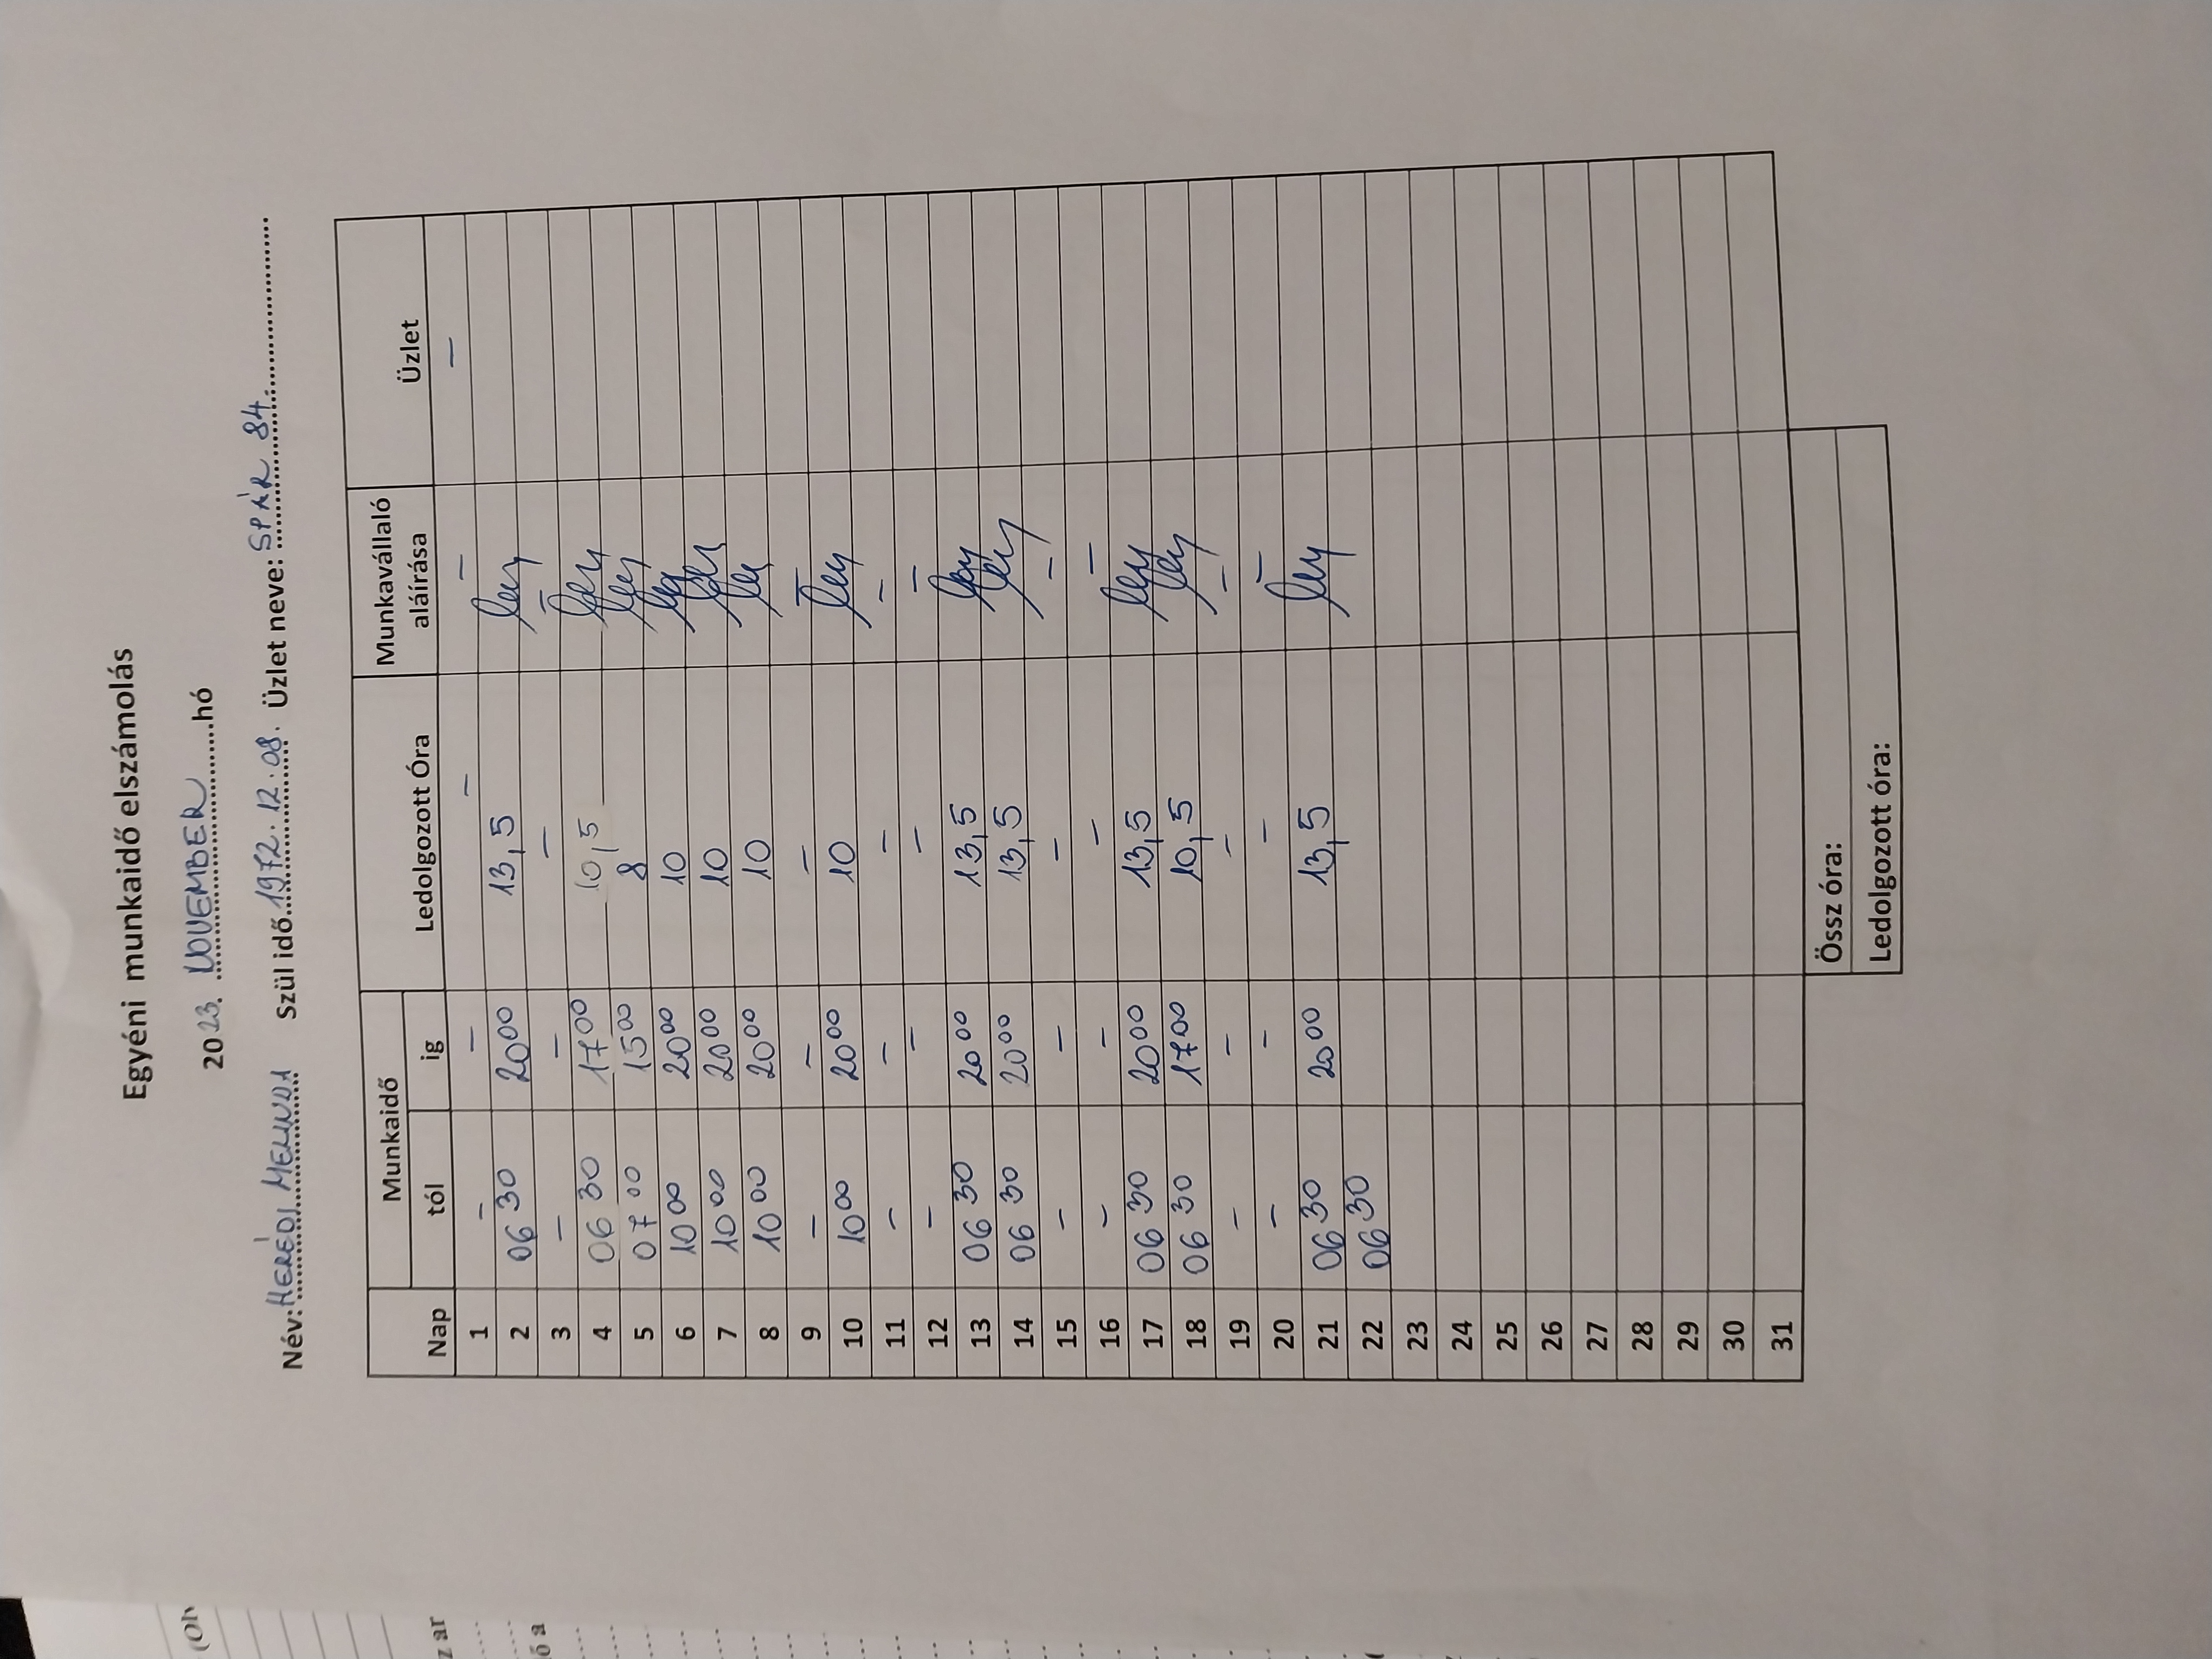 Egyéni munkaidő elszámolás
2023. NOVEMBER hó
Név: HERÉDI MELINDA Szül idő 1972.12.08. Üzlet neve: SPÁR 84.
Nap Munkaidő Ledolgozott Óra Munkavállaló aláírása Üzlet
tól ig
1 - - - - -
2 06 30 20 00 13,5
3 - - - -
4 06 30 17 00 10,5
5 07 00 15 00 8
6 10 00 20 00 10
7 10 00 20 00 10
8 10 00 20 00 10
9 - - - -
10 10 00 20 00 10
11 - - - -
12 - - - -
13 06 30 20 00 13,5
14 06 30 20 00 13,5
15 - - - -
16 - - - -
17 06 30 20 00 13,5
18 06 30 17 00 10,5
19 - - - -
20 - - - -
21 06 30 20 00 13,5
22 06 30
23
24
25
26
27
28
29
30
31
Össz óra:
Ledolgozott óra:
z ar
ő a